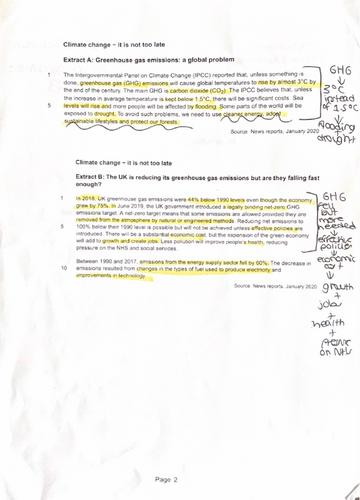 Climate change – it is not too late
Extract A: Greenhouse gas emissions: a global problem
1 The Intergovernmental Panel on Climate Change (IPCC) reported that, unless something is
done, greenhouse gas (GHG) emissions will cause global temperatures to rise by almost 3°C by
the end of the century. The main GHG is carbon dioxide (CO₂). The IPCC believes that, unless
the increase in temperature is kept below 1.5°C, there will be significant costs. Sea
5 levels will rise and more people will be affected by flooding. Some parts of the world will be
exposed to drought. To avoid such problems, we need to use cleaner energy, adopt
sustainable lifestyles and protect our forests.
Source: News reports, January 2020
GHG
3°C
instead
of 1.5°C
flooding
drought
Climate change – it is not too late
Extract B: The UK is reducing its greenhouse gas emissions but are they falling fast
enough?
1 In 2018, UK greenhouse gas emissions were 44% below 1990 levels even though the economy
grew by 75%. In June 2019, the UK government introduced a legally binding net-zero GHG
emissions target. A net-zero target means that some emissions are allowed provided they are
removed from the atmosphere by natural or engineered methods. Reducing net emissions to
5 100% below their 1990 level is possible but will not be achieved unless effective policies are
introduced. There will be a substantial economic cost, but the expansion of the green economy
will add to growth and create jobs. Less pollution will improve people's health, reducing
pressure on the NHS and social services.
Between 1990 and 2017, emissions from the energy supply sector fell by 60%. The decrease in
10 emissions resulted from changes in the types of fuel used to produce electricity and
improvements in technology.
Source: News reports, January 2020
GHG
fell
but
more
needed
effective
policies
economic
growth
+
jobs
+
health
+
on NHS
Page 2